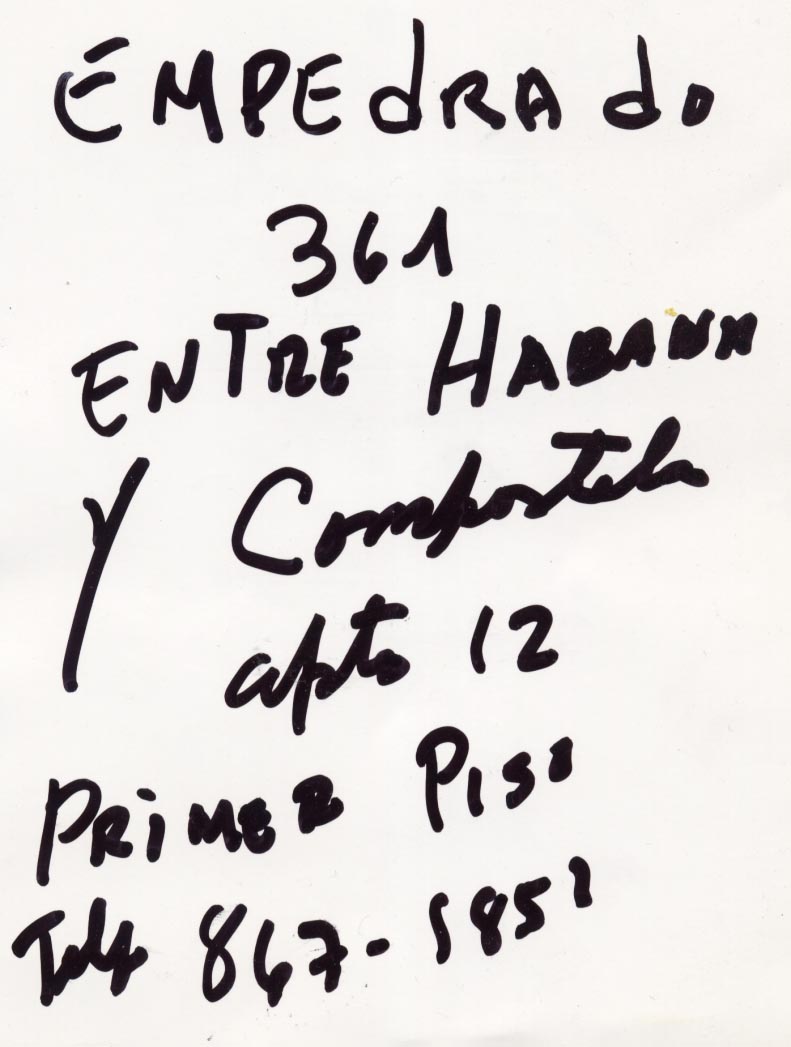 EMPEdRAdo
361
ENTRE HABANA
Y Compostela
apto 12
PRiMER PISO
Telf 867-5851